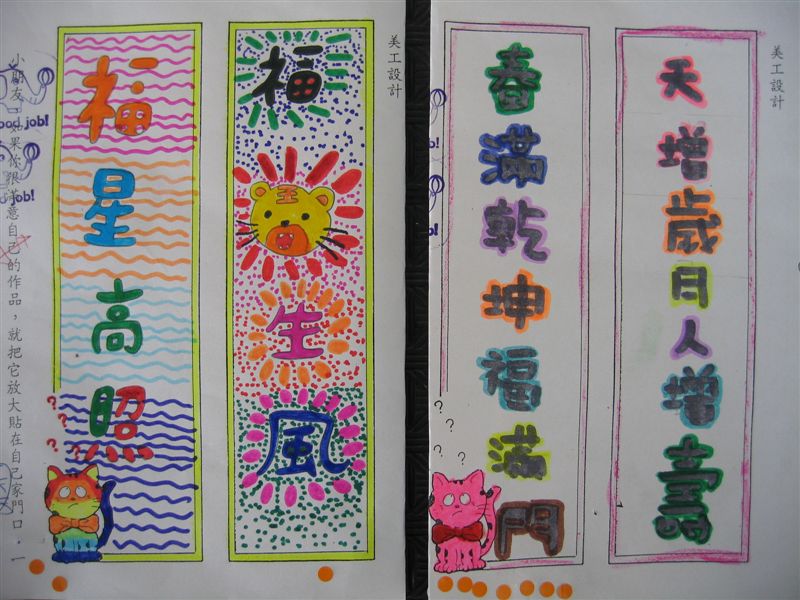 美工設計
福
王
生風
福星高照
? ? ? ? ?
小朋友，如果你很滿意自己的作品，就把它放大貼在自己家門口，一
ood job!
job!
美工設計
天增歲月人增壽
春滿乾坤福滿門
? ? ? ?
b!
b!